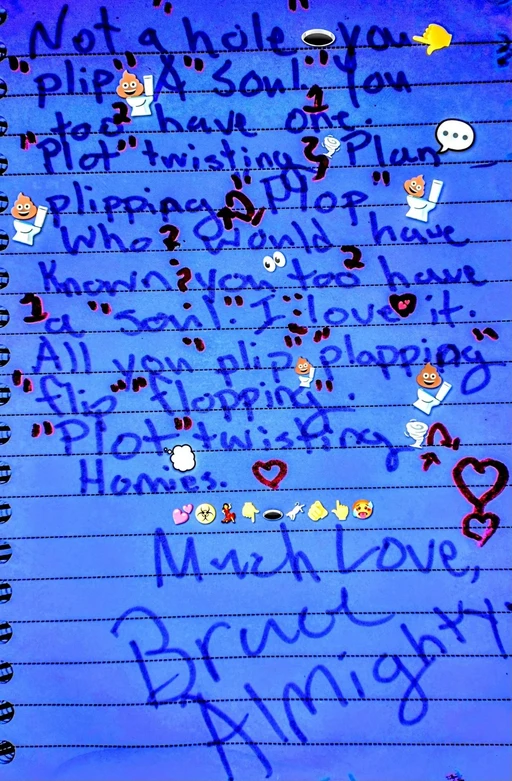 "Not a hole" you
"plip" A "Soul." You
too 2 have one. 1
"Plot" twisting ? Plan
plipping ? "Plop"
Who? would have
Known? you too 2 have
1 a "Soul". I love it.
All you "plip" plapping"
"flip" "flopping".
"Plot" twisting
Homies.
Much Love,
Bruce
Almighty